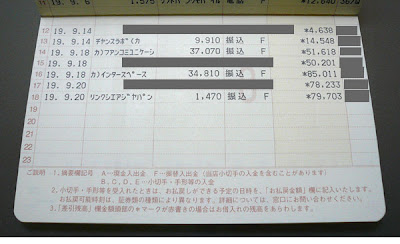 12 19. 9.14 *4.638
13 19. 9.14 チヤンスラボ(カ 9.910 振込 F *14.548
14 19. 9.18 カ)フアンコミユニケーシ 37.070 振込 F *51.618
15 19. 9.18 *50.201
16 19. 9.18 カ)インタースペース 34.810 振込 F *85.011
17 19. 9.20 *78.233
18 19. 9.20 リンクシエアジヤパン 1.470 振込 F *79.703
19
20
21
22
23
ご説明 1.摘要欄記号 A…現金入出金 F…振替入出金(当店小切手の入金を含むことがあります)
B、C、D、E…小切手・手形等の入金
2.小切手・手形等を受入れたときは、お払戻しができる予定の日時を、「お払戻金額」欄に記入いたします。
お払戻可能時刻は、証券類の種類により異なります。詳細については、窓口にお問い合わせください。
3.「差引残高」欄金額頭部の*マークが赤書きの場合はお借入れの残高をあらわします。